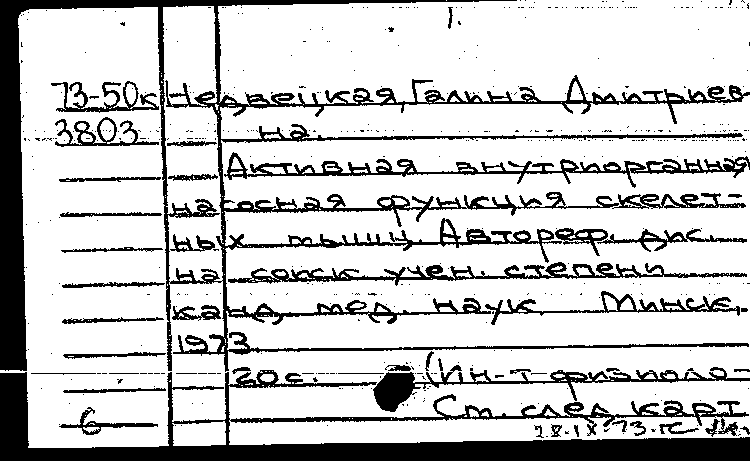 1.
73-50к Недвецкая, Галина Дмитриев-
3803 на.
Активная внутриорганная
насосная функция скелет-
ных мышц. Автореф. дис.
на соиск учен. степени
канд. мед. наук. Минск,
1973.
20 с. (Ин-т физиоло-
6 См. след. карт.
28.IX.73.